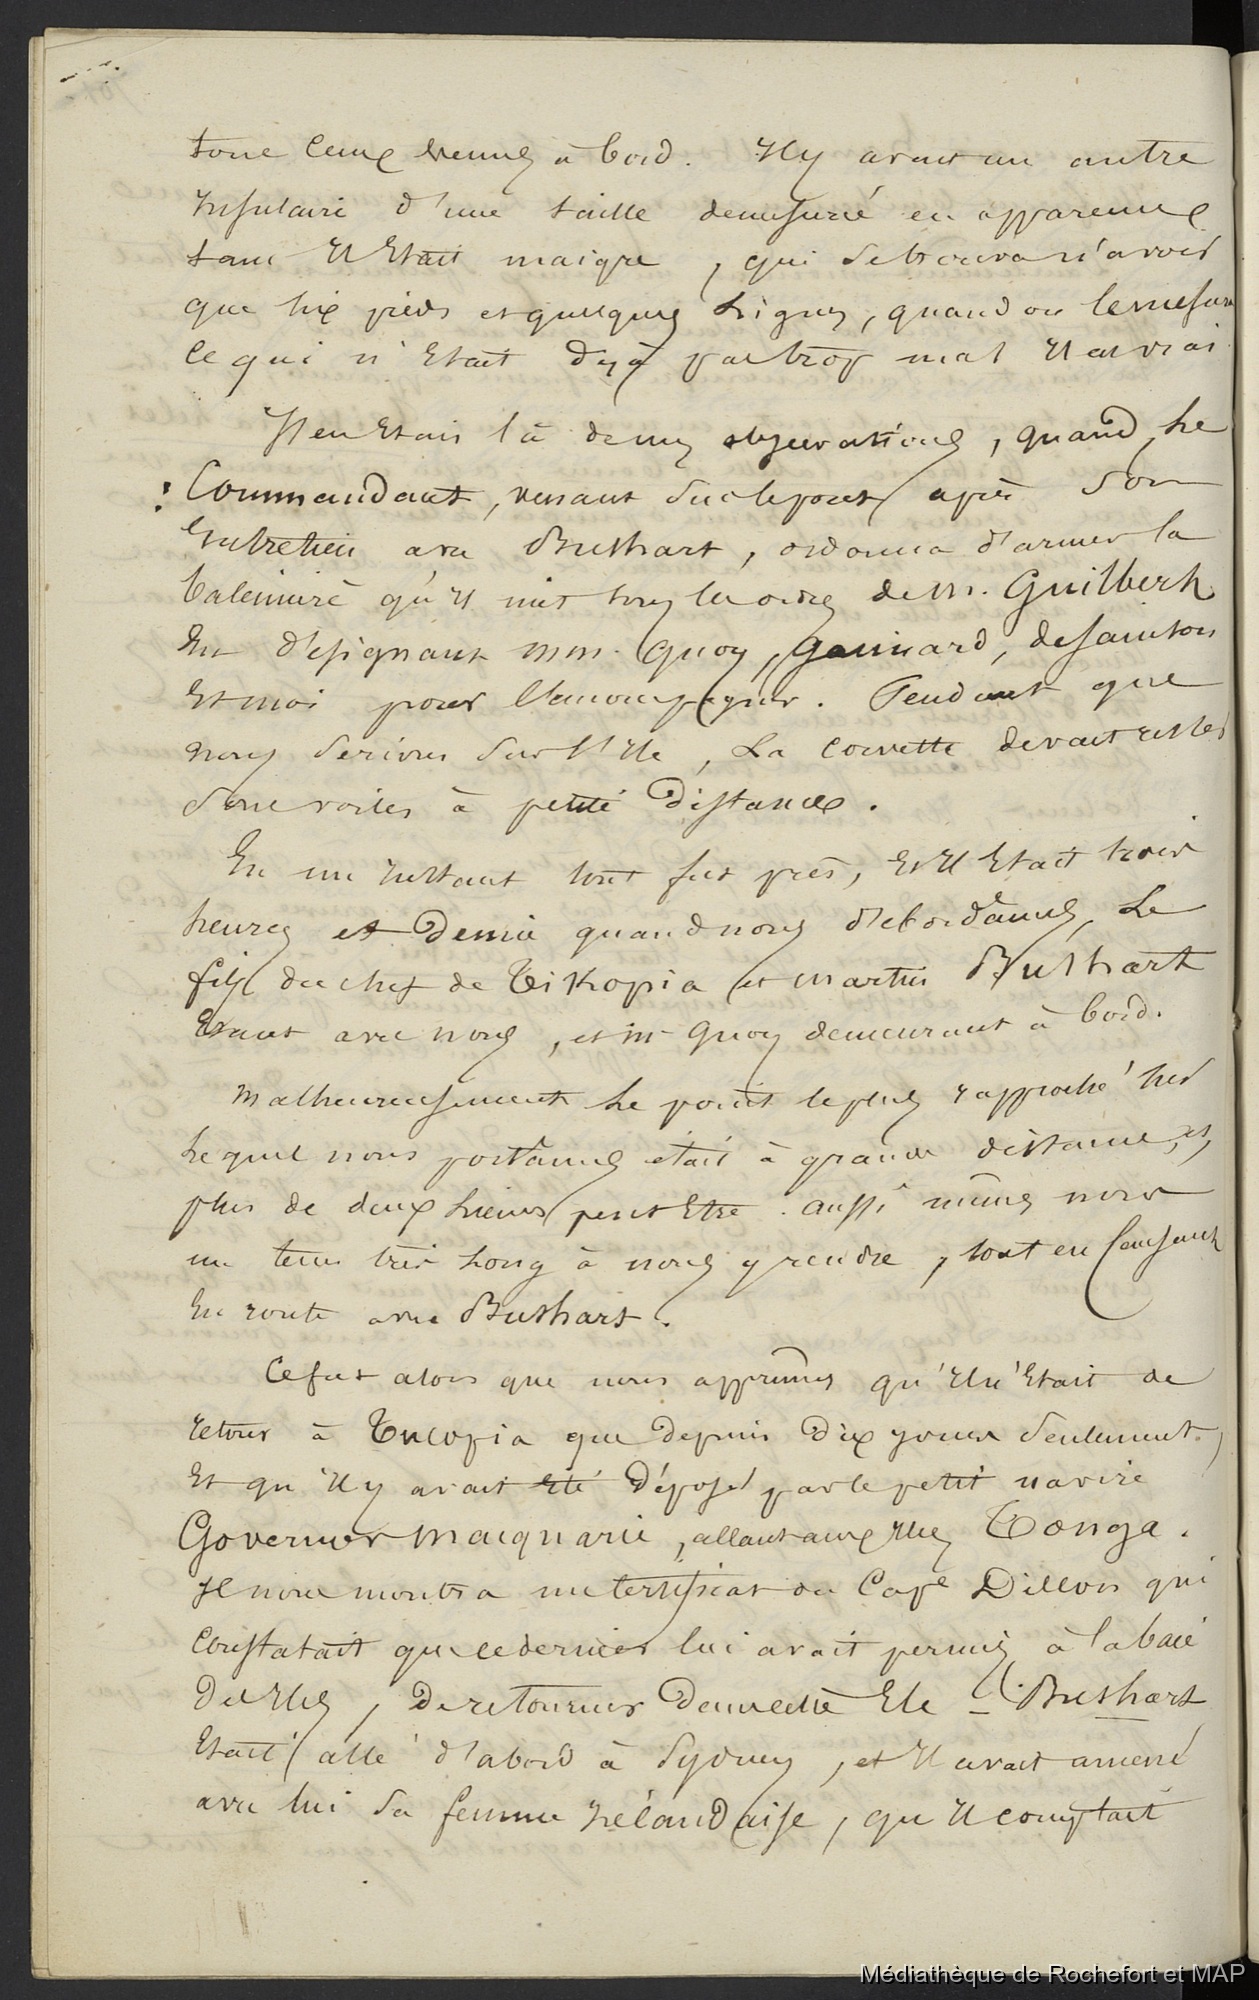 tous ceux venus à bord. Il y avait un autre
insulaire d'une taille demesurée en apparence
tant il était maigre, qui se trouva n'avoir
que six pieds et quelques lignes, quand on le mesura
ce qui n'était déjà pas trop mal il est vrai.
J'en étais là de mes observations, quand le
Commandant, venant sur le pont après son
entretien avec Bushart, ordonna d'armer la
baleinière qu'il mit sous les ordres de M. Guilbert
en désignant MM. Quoy, Gaimard, de Sainson
et moi pour l'accompagner. Pendant que
nous serions sur l'île, la corvette devait rester
sous voiles à petite distance.
En un instant tout fut près, et il était trois
heures et demie quand nous débordâmes, le
fils du chef de Tikopia et Martin Bushart
étant avec nous, et Mr Quoy demeurant à bord.
Malheureusement le point le plus rapproché sur
lequel nous portâmes était à grande distance, à
plus de deux lieues peut être. aussi mîmes nous
un tems très long à nous y rendre, tout en causant
en route avec Bushart.
Ce fut alors que nous apprîmes qu'il n'était de
retour à Tucopia que depuis dix jours seulement,
et qu'il y avait été déposé par le petit navire
Governer Macquarie, allant aux îles Tonga.
Il nous montra un certificat du Cape Dillon qui
constatait que ce dernier lui avait permis, à la baie
des îles, de retourner dans cette île - Bushart
était allé d'abord à Sydney, et il avait amené
avec lui sa femme zélandaise, qu'il comptait
Médiathèque de Rochefort et MAP